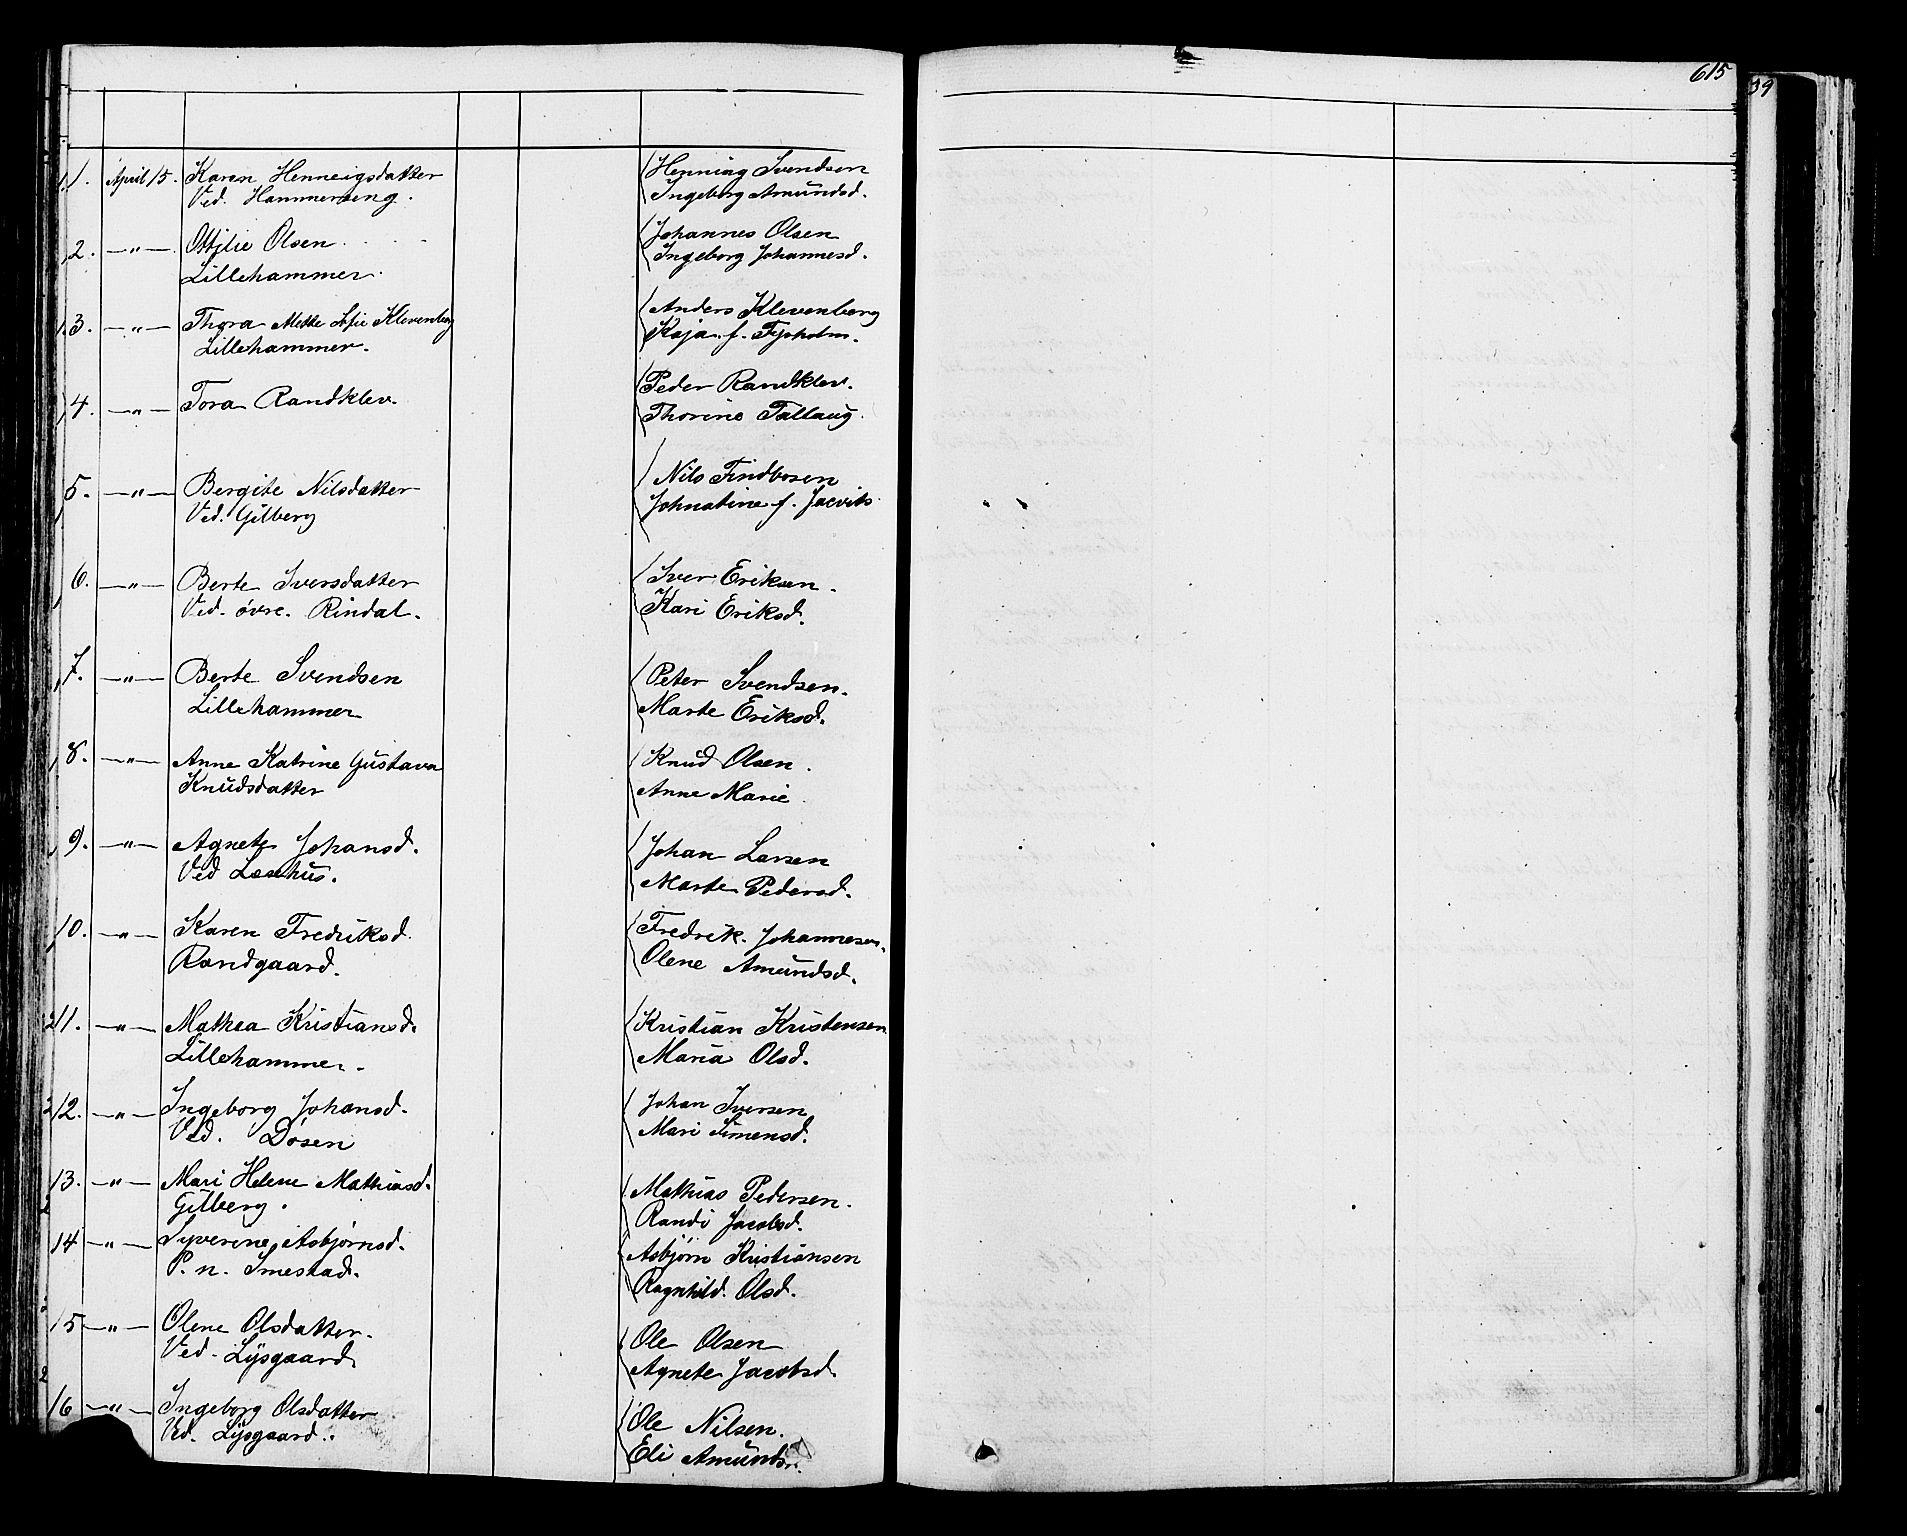 615
39
1. April 15. Karen Henneigsdatter Henning Svendsen
Ved. Hammerseng. Ingeborg Amundsd.
2. —"— Ottilie Olsen Johannes Olsen
Lillehammer. Ingeborg Johannesd.
3. —"— Thora Mette Sofie Klevenberg Anders Klevenberg
Lillehammer. Kaja f.
4. —"— Tora Randklev. Peder Randklev.
Thorine Tallaug.
5. —"— Bergite Nilsdatter Nils Findbosen
Ved. Gilberg Johnatine f.
6. —"— Berte Iversdatter Iver Eriksen.
Ved. övre. Rindal. Kari Eriksd.
7. —"— Berte Svendsen Peter Svendsen.
Lillehammer Marte Eriksd.
8. —"— Anne Katrine Gustava Knud Olsen.
Knudsdatter Anne Marie.
9. —"— Agnete Johansd. Johan Larsen
Ved Marte Pedersd.
10. —"— Karen Fredriksd. Fredrik. Johannesen.
Randgaard. Olene Amundsd.
11. —"— Mathea Kristiansd. Kristian Kristensen
Lillehammer. Maria Olsd.
12. —"— Ingeborg Johansd. Johan Iversen
Ved. Dösen Mari Simensd.
13. —"— Mari Helene Mathiasd. Mathias Pedersen.
Gilberg. Randi Jacobsd.
14 —"— Syverine Asbjørnsd. Asbjørn Kristiansen
P. n. Imestad. Ragnhild. Olsd.
15 —"— Olene Olsdatter. Ole Olsen
Ved. Lysgaard Agnete Jacobsd.
16 —"— Ingeborg Olsdatter Ole Nilsen.
Ved. Lysgaard. Eli